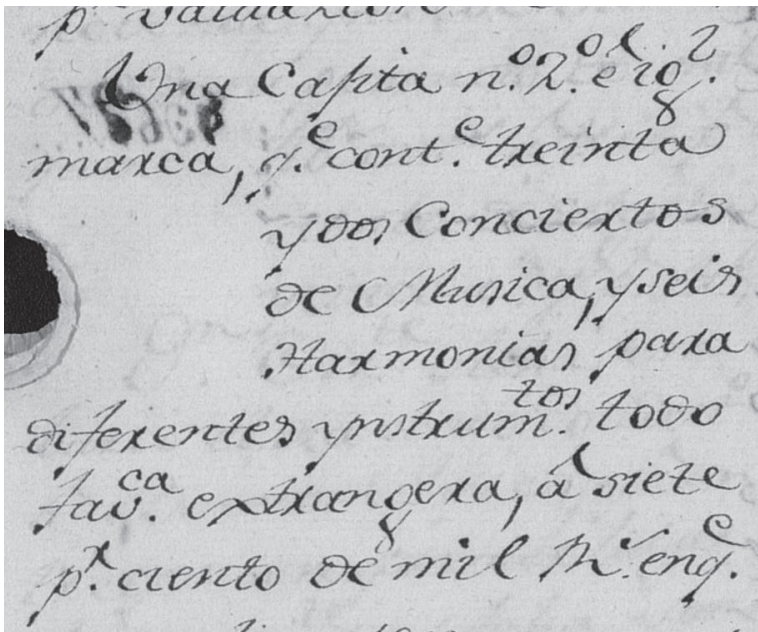 Una Caxita n.º 2.º e ig.l
marca, q.e cont.e treinta
y dos Conciertos
de Musica, y seis
Harmonias para
diferentes ynstrum.tos todo
fav.ca extrangera, â siete
p.r ciento de mil R.s enq.e